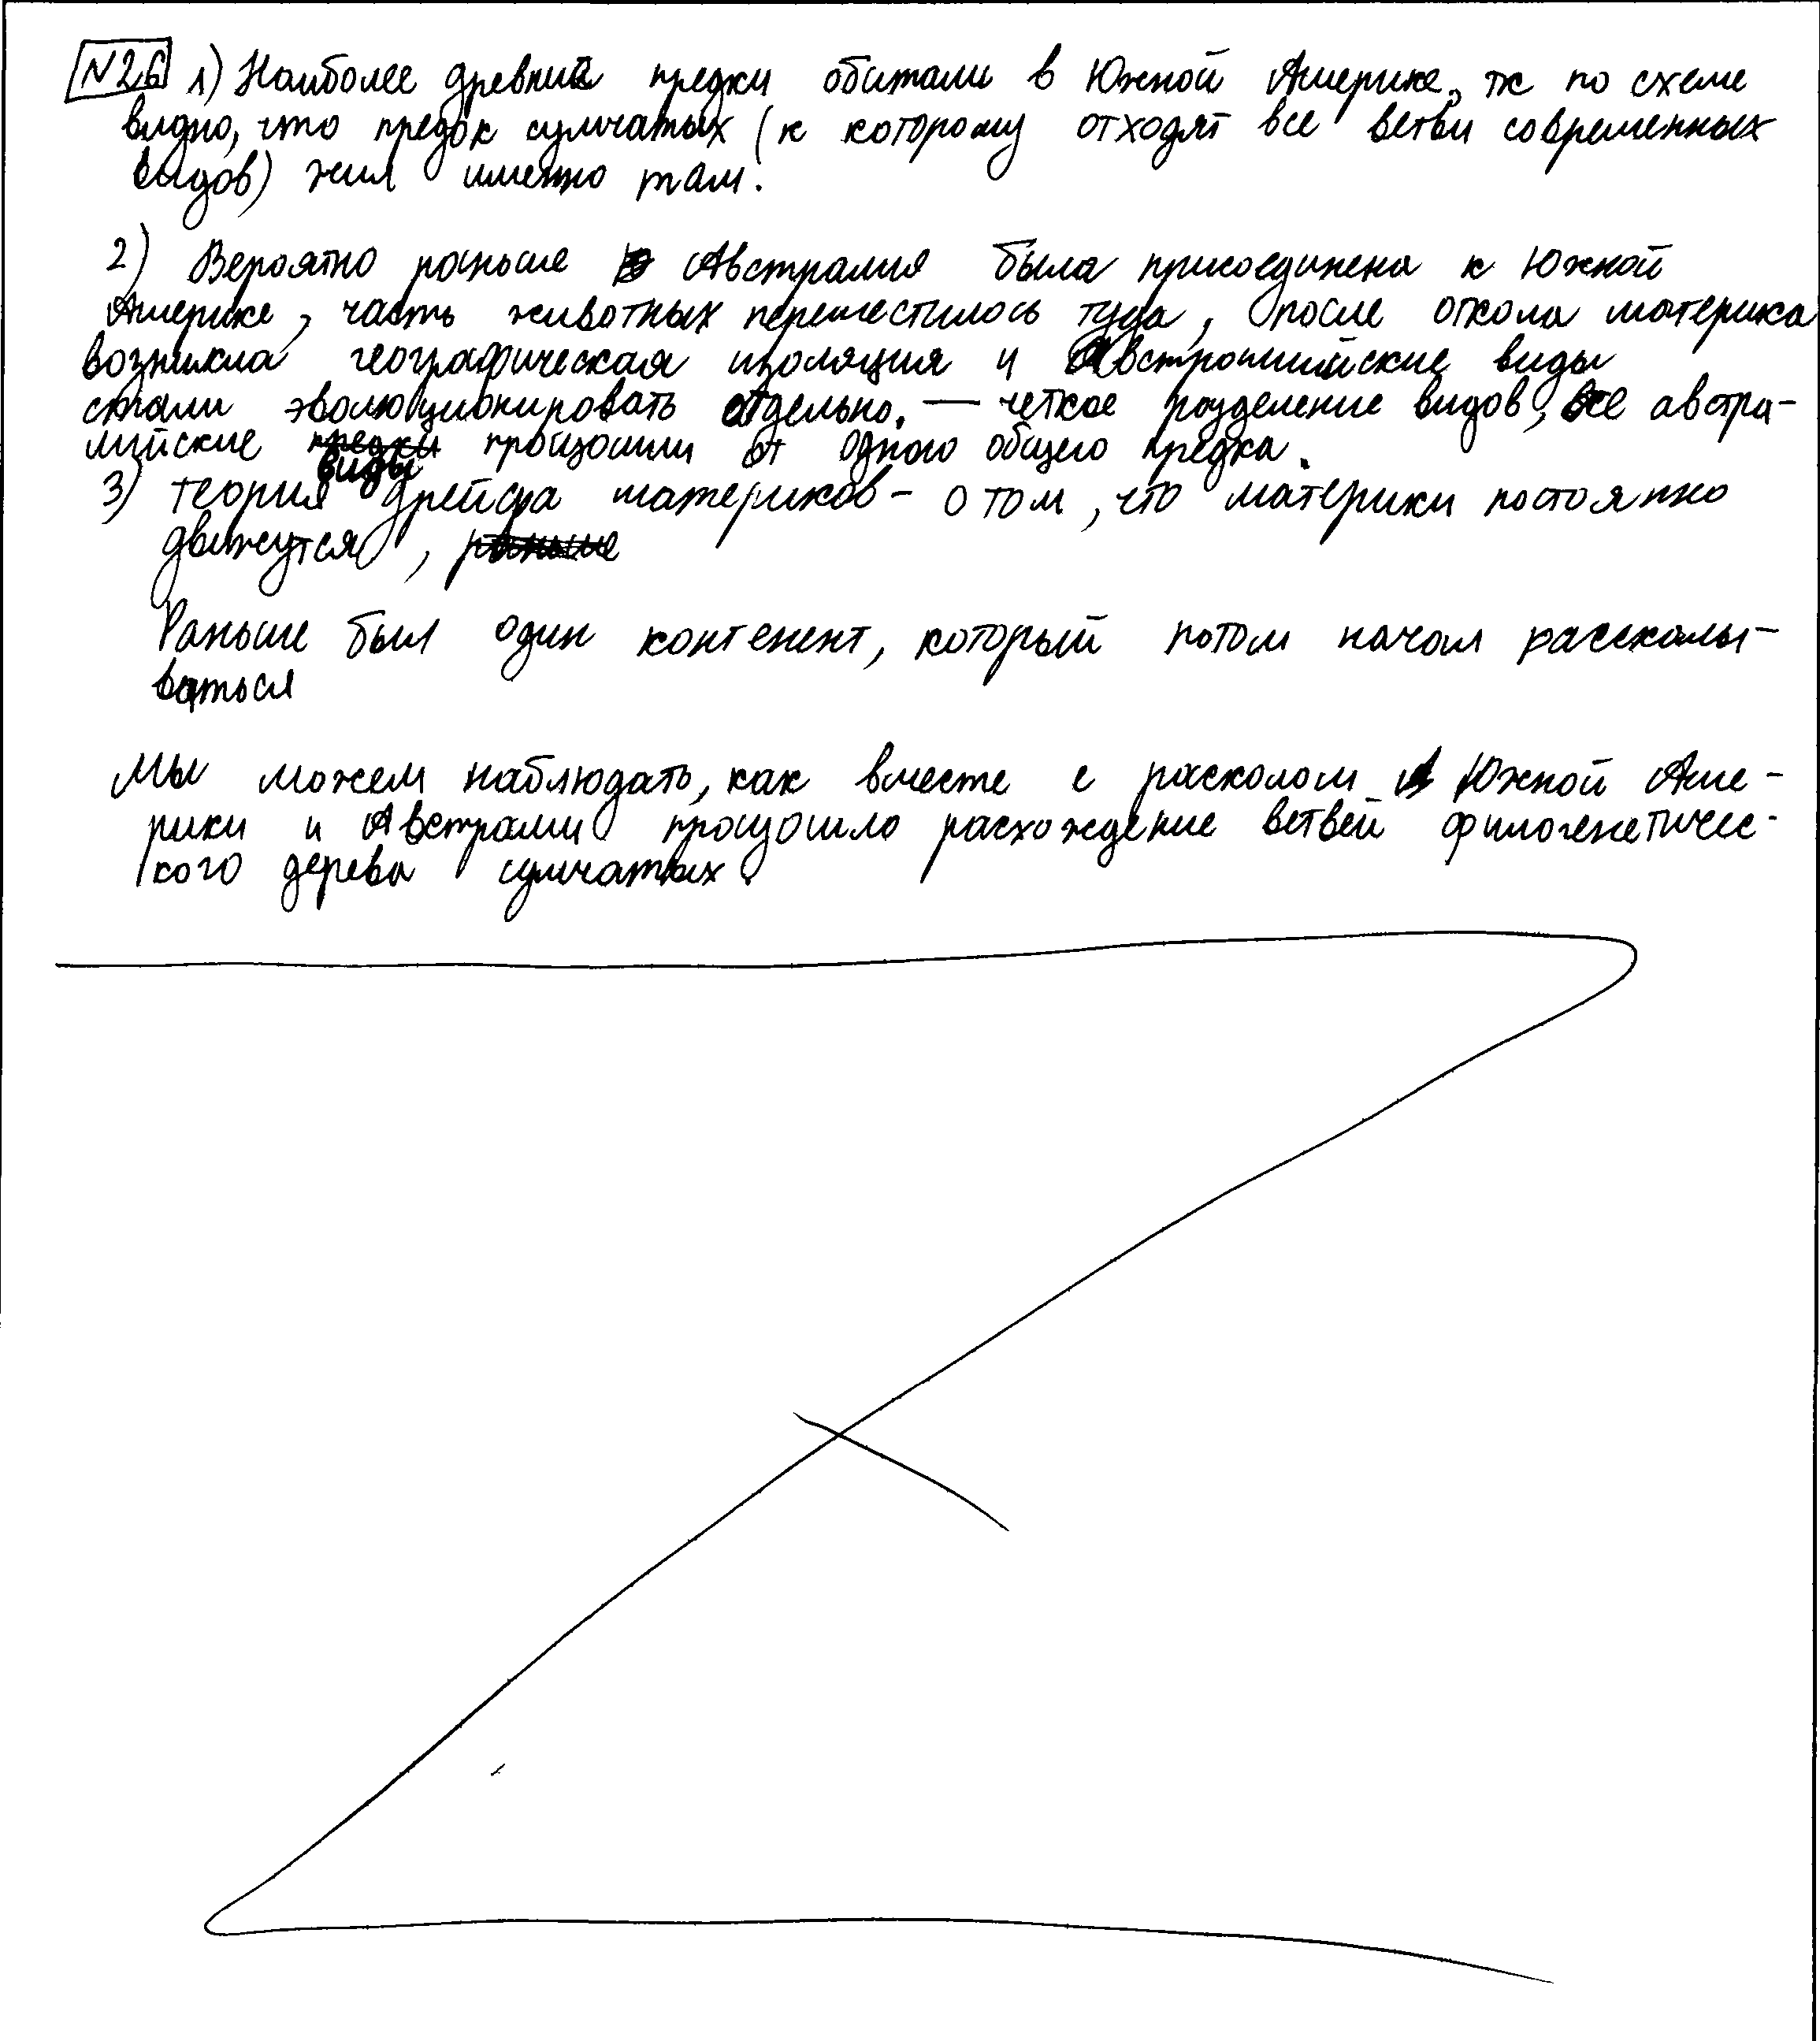 №26 1) Наиболее древние предки обитали в Южной Америке, тк по схеме
видно, что предок сумчатых (к которому отходят все ветви современных
видов) жил именно там.
2) Вероятно раньше Австралия была присоединена к Южной
Америке, часть животных переместилось туда, после откола материка
возникла географическая изоляция и Австралийские виды
стали эволюционировать отдельно. — четкое разделение видов, все австра-
лийские предки произошли от одного общего предка.
виды
3) теория дрейфа материков - о том, что материки постоянно
движутся, раньше
Раньше был один контенент, который потом начал расскалы-
ваться
Мы можем наблюдать, как вместе с расколом Южной Аме-
рики и Австралии произошло расхождение ветвей филогенетичес-
кого дерева сумчатых.